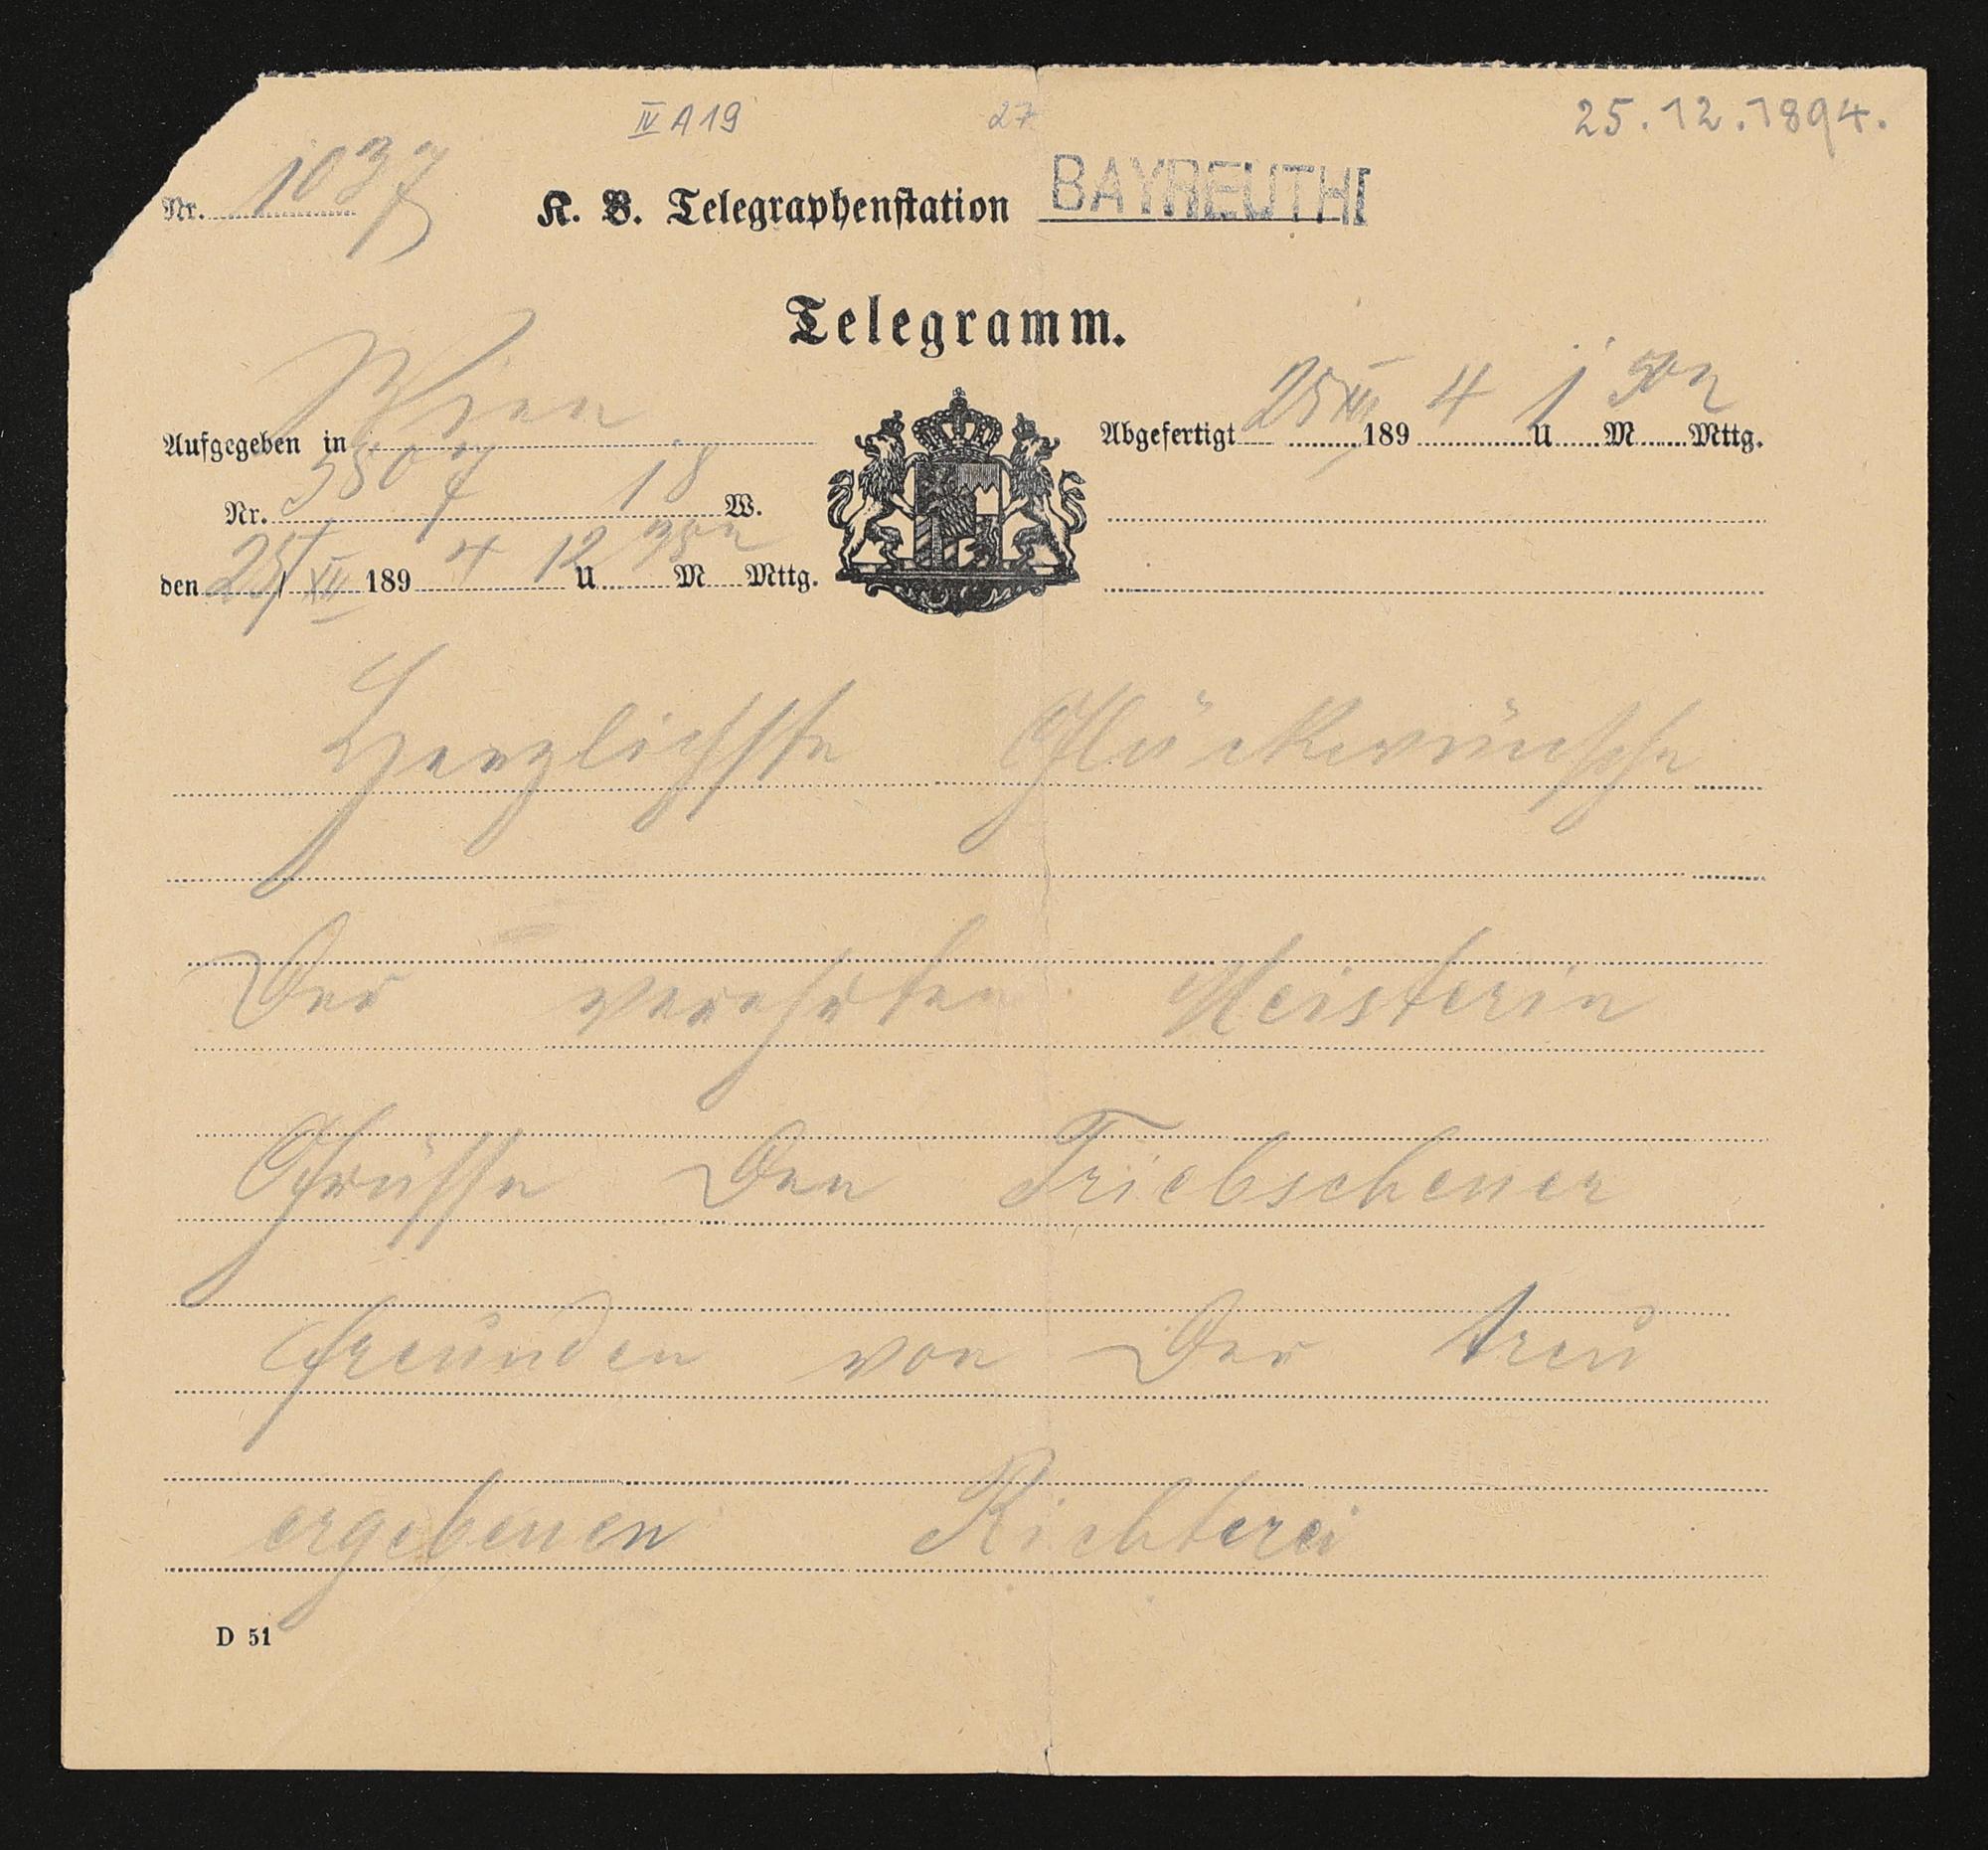 IV A 19 27 25.12.1894.
Nr. 1037 K. B. Telegraphenstation BAYREUTH
Telegramm.
Aufgegeben in Wien Abgefertigt 25/XII 1894 1 U 50 M n Mttg.
Nr. 5507 18 W.
den 25/XII 1894 12 U 35 M n Mttg.
Herzlichste Glückwünsche
Der verehrten Meisterin
Grüsse Den Triebschener
freunden von Der treu
ergebenen Richterei
D 51